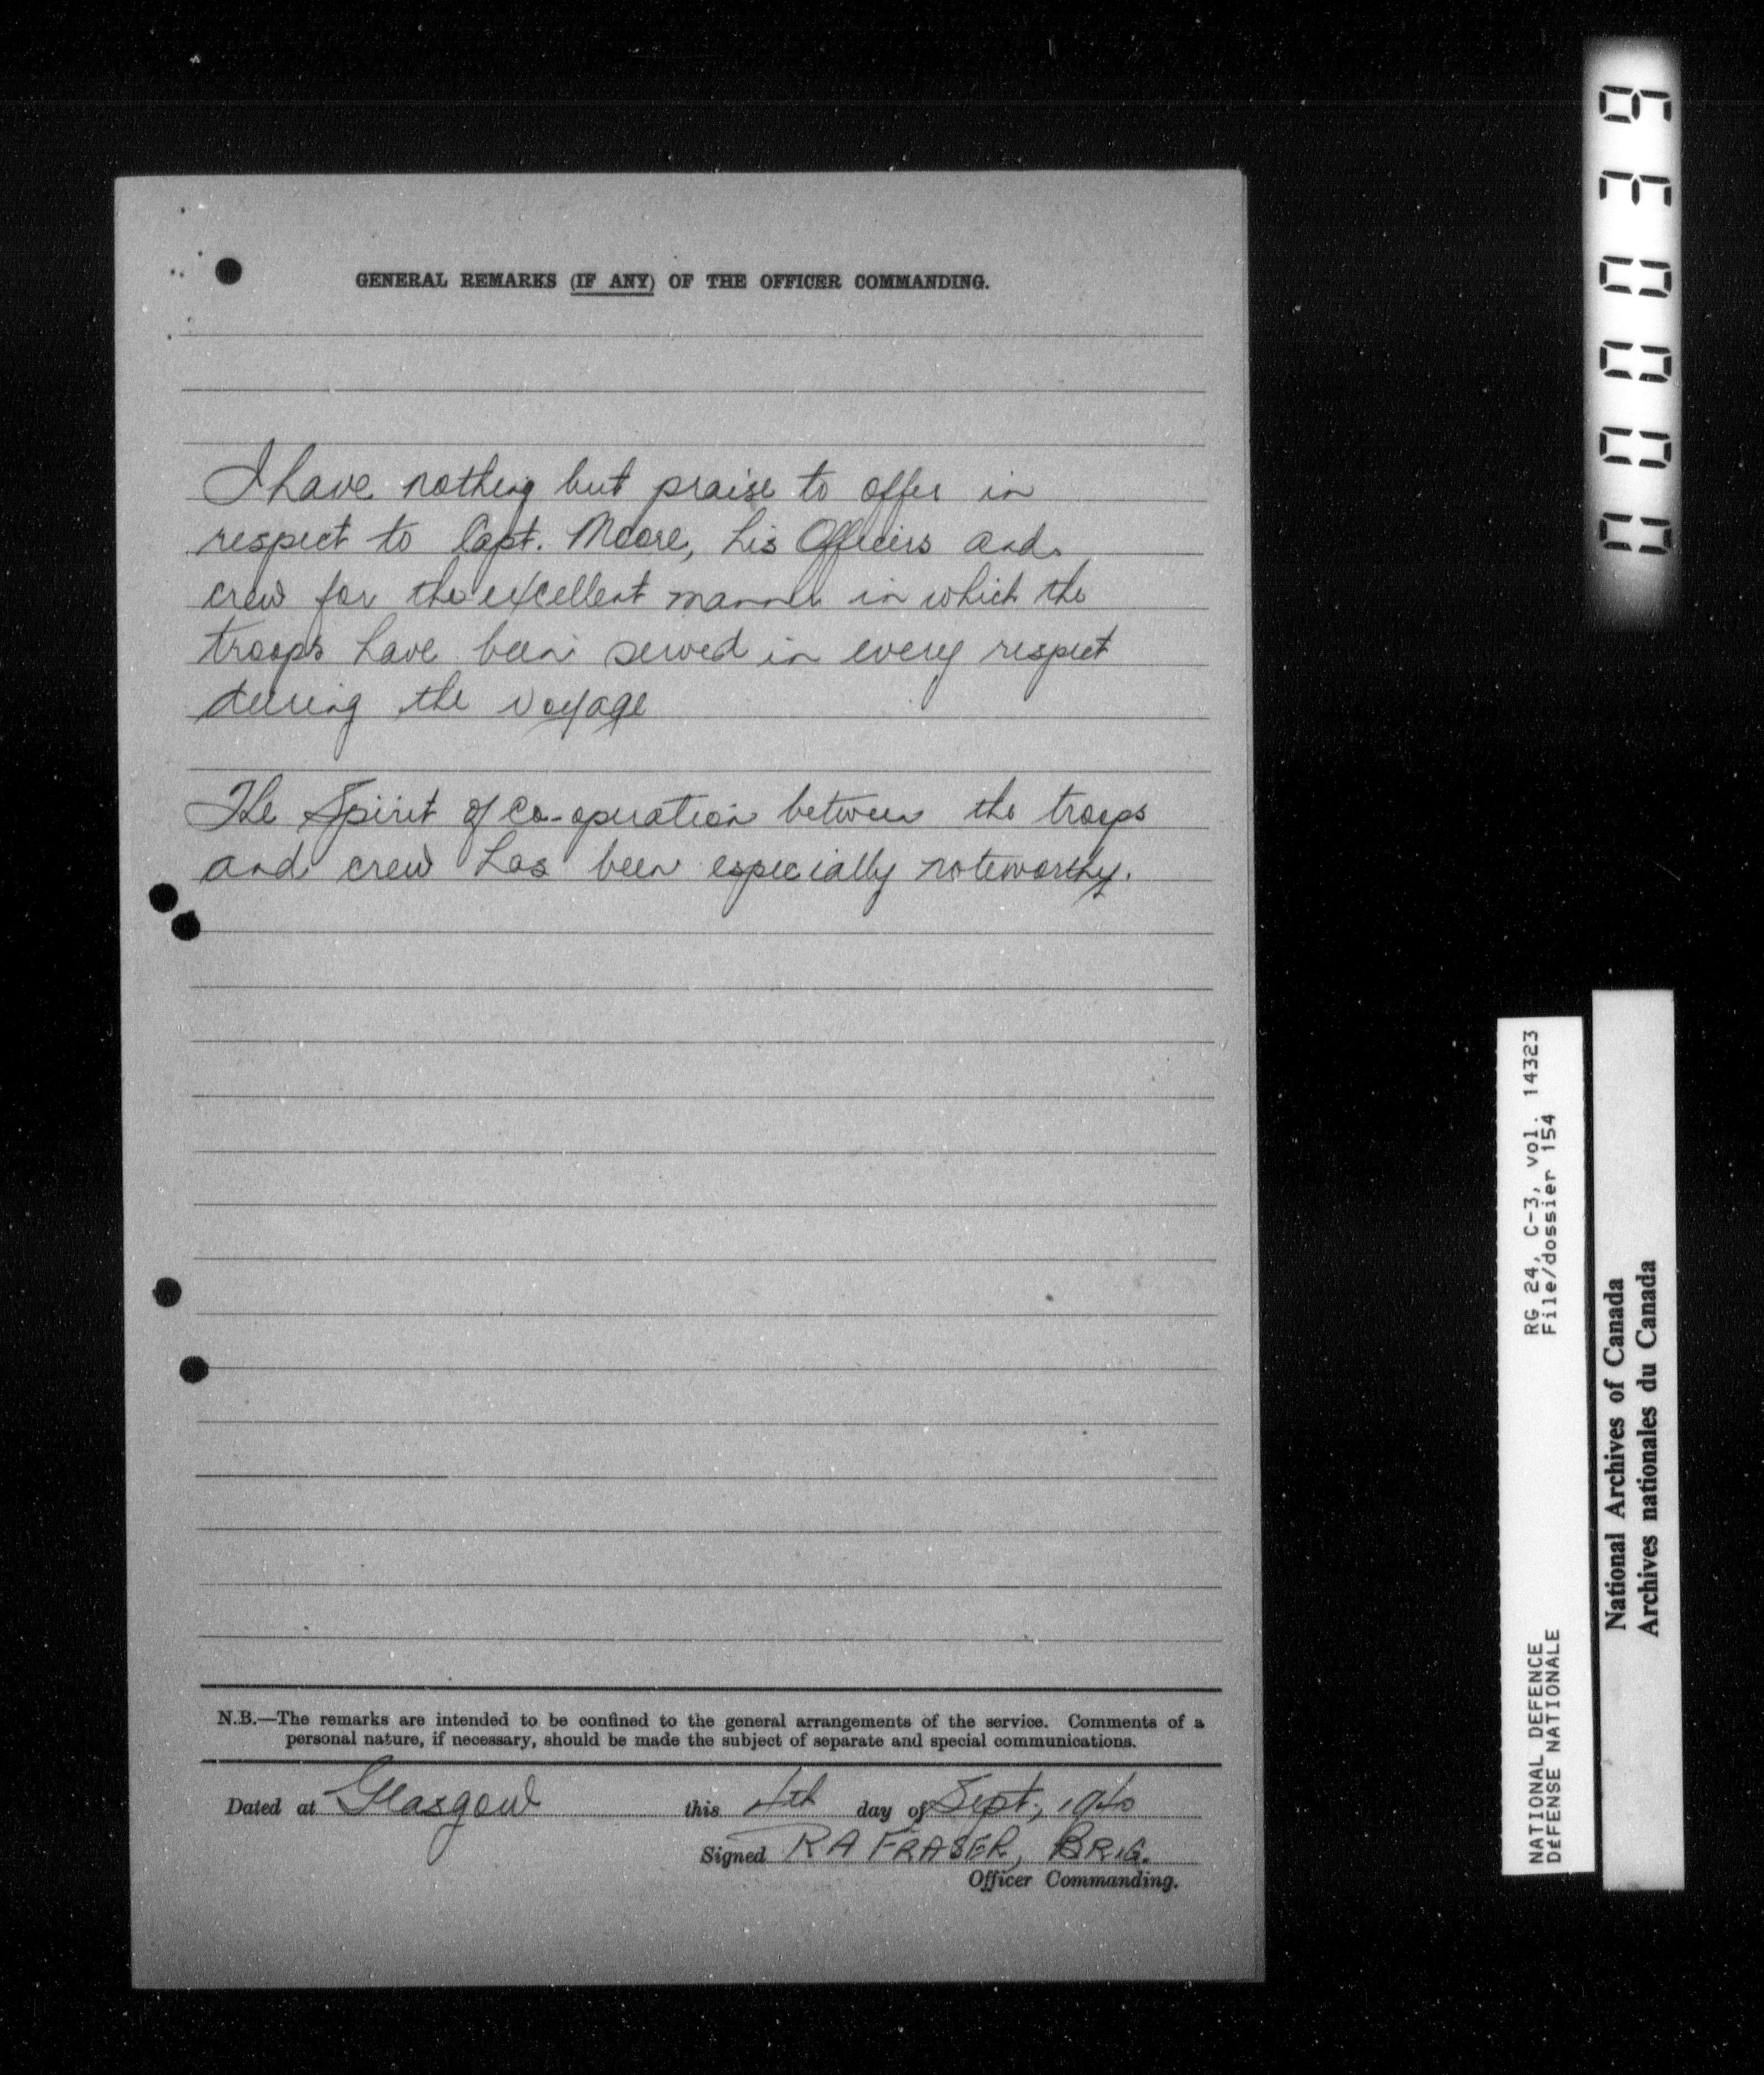 GENERAL REMARKS (IF ANY) OF THE OFFICER COMMANDING.
I have nothing but praise to offer in
respect to Capt. Moore, his Officers and
crew for the excellent manner in which the
troops have been served in every respect
during the voyage
The Spirit of co-operation between the troops
and crew has been especially noteworthy.
N.B.—The remarks are intended to be confined to the general arrangements of the service. Comments of a
personal nature, if necessary, should be made the subject of separate and special communications.
Dated at Glasgow this 4th day of Sept, 1940
Signed R A FRASER, BRIG.
Officer Commanding.
000039
NATIONAL DEFENCE RG 24, C-3, vol. 14323
DÉFENSE NATIONALE File/dossier 154
National Archives of Canada
Archives nationales du Canada